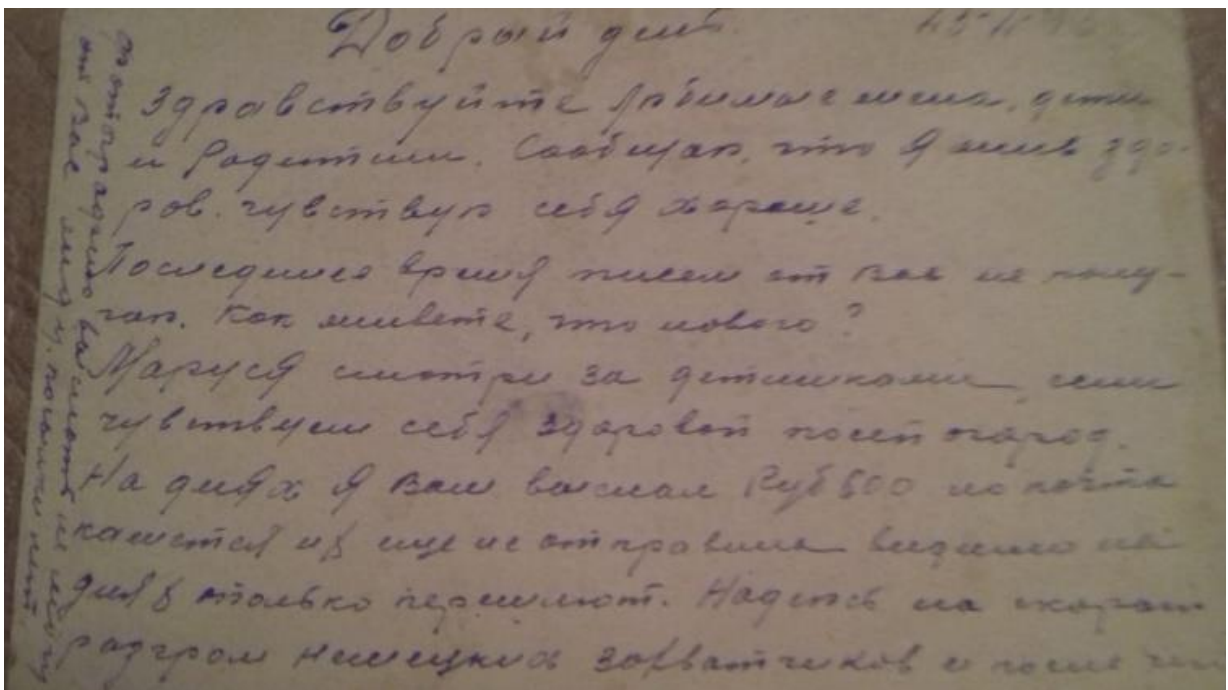 Добрый день.
Здравствуйте любимые жена, дети
и родители. Сообщаю, что я жив здо-
ров. чувствую себя хорошо.
Последнее время писем от вас не полу-
чаю. Как живете, что нового?
Маруся смотри за детишками, если
чувствуеш себя здоровой посей огород.
На днях я Вам выслал Руб 800 но почта
кажется их еще не отправила видимо на
днях только перешлют. Надеюсь на скорый
разгром немецких захватчиков и после
фотографию выслать не могу